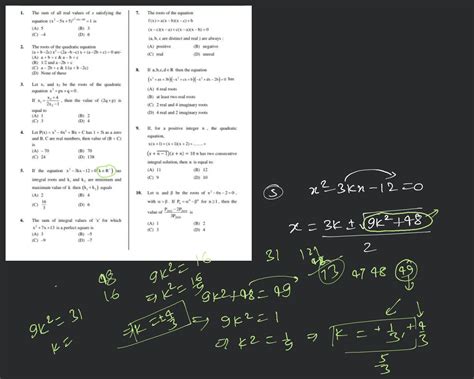 1. The sum of all real values of x satisfying the
equation (x² – 5x + 5) = 1 is
(A) 5 (B) 3
(C) –4 (D) 6
2. The roots of the quadratic equation
(a + b – 2c) x² – (2a – b – c) x + (a – 2b + c) = 0 are-
(A) a + b + c & a – b + c
(B) 1/2 and a – 2b + c
(C) a – 2b + c & 1/(a + b – 2c)
(D) None of these
3. Let x₁ and x₂ be the roots of the quadratic
equation x² + px + q = 0.
, then the value of (2q + p) is
equal to
(A) 1 (B) 2
(C) 3 (D) 4
4. Let P(x) = x³ – 8x² + Bx + C has 1 + 5i as a zero
and B, C are real numbers, then value of (B + C)
is
(A) – 70 (B) 70
(C) 24 (D) 138
5. If the equation x² – 3kx – 12 = 0 (k ∈ R⁺) has
integral roots and k₁ and k₂ are minimum and
maximum value of k then (k₁ + k₂) equals
(A) 2
(C) 16/3 (D) 6
6. The sum of integral values of 'x' for which
x² + 7x + 13 is a perfect square is
(A) 3 (B) –5
(C) –7 (D) –7
7. The roots of the equation
f(x) = a(x – b)(x – c) + b
(x – c)(x – a) + c(x – a)(x – b) = 0
(a, b, c are distinct and real) are always :
(A) positive (B) negative
(C) real (D) unreal
8. If a,b,c,d ∈ R. then the equation
(A) 6 real roots
(B) at least two real roots
(C) 2 real and 4 imaginary roots
(D) 4 real and 2 imaginary roots
9. If, for a positive integer n , the quadratic
equation,
x(x + 1) + (x + 1)(x + 2) + ......+
(x + n – 1)(x + n) = 10 n has two consecutive
integral solution, then n is equal to
(A) 11 (B) 12
(C) 9 (D) 10
10. Let α and β be the roots of x² – 6x – 2 = 0 ,
with α > β . If
value of is
(A) 1 (B) 2
(C) 3 (D) 4
5 x² – 3kx – 12 = 0
x = 3k ± √9k² + 48
2
9k² = 16
k² = 16/9
k = ±4/3
48
16
9k² = 31
k =
31 48 13 47 48 49
9k² + 48 = 49
⇒ 9k² = 1
⇒ k² = 1/9 ⇒ k = ± 1/3, ± 4/3
5/3